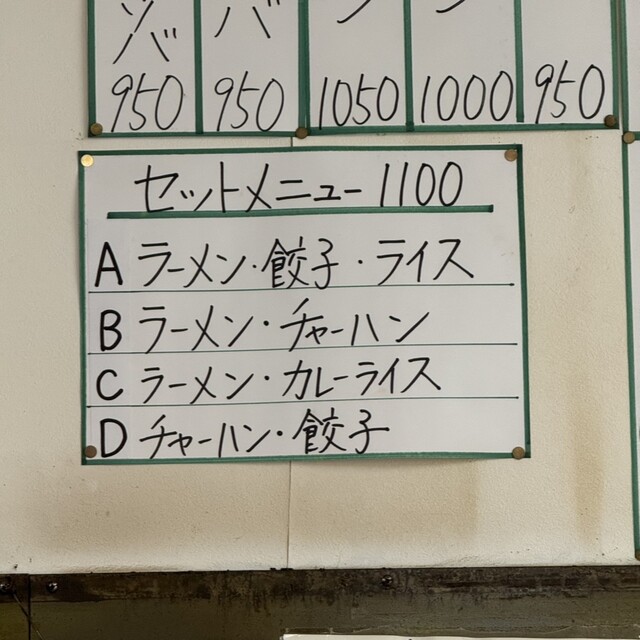 950 950 1050 1000 950
セットメニュー 1100
A ラーメン・餃子・ライス
B ラーメン・チャーハン
C ラーメン・カレーライス
D チャーハン・餃子